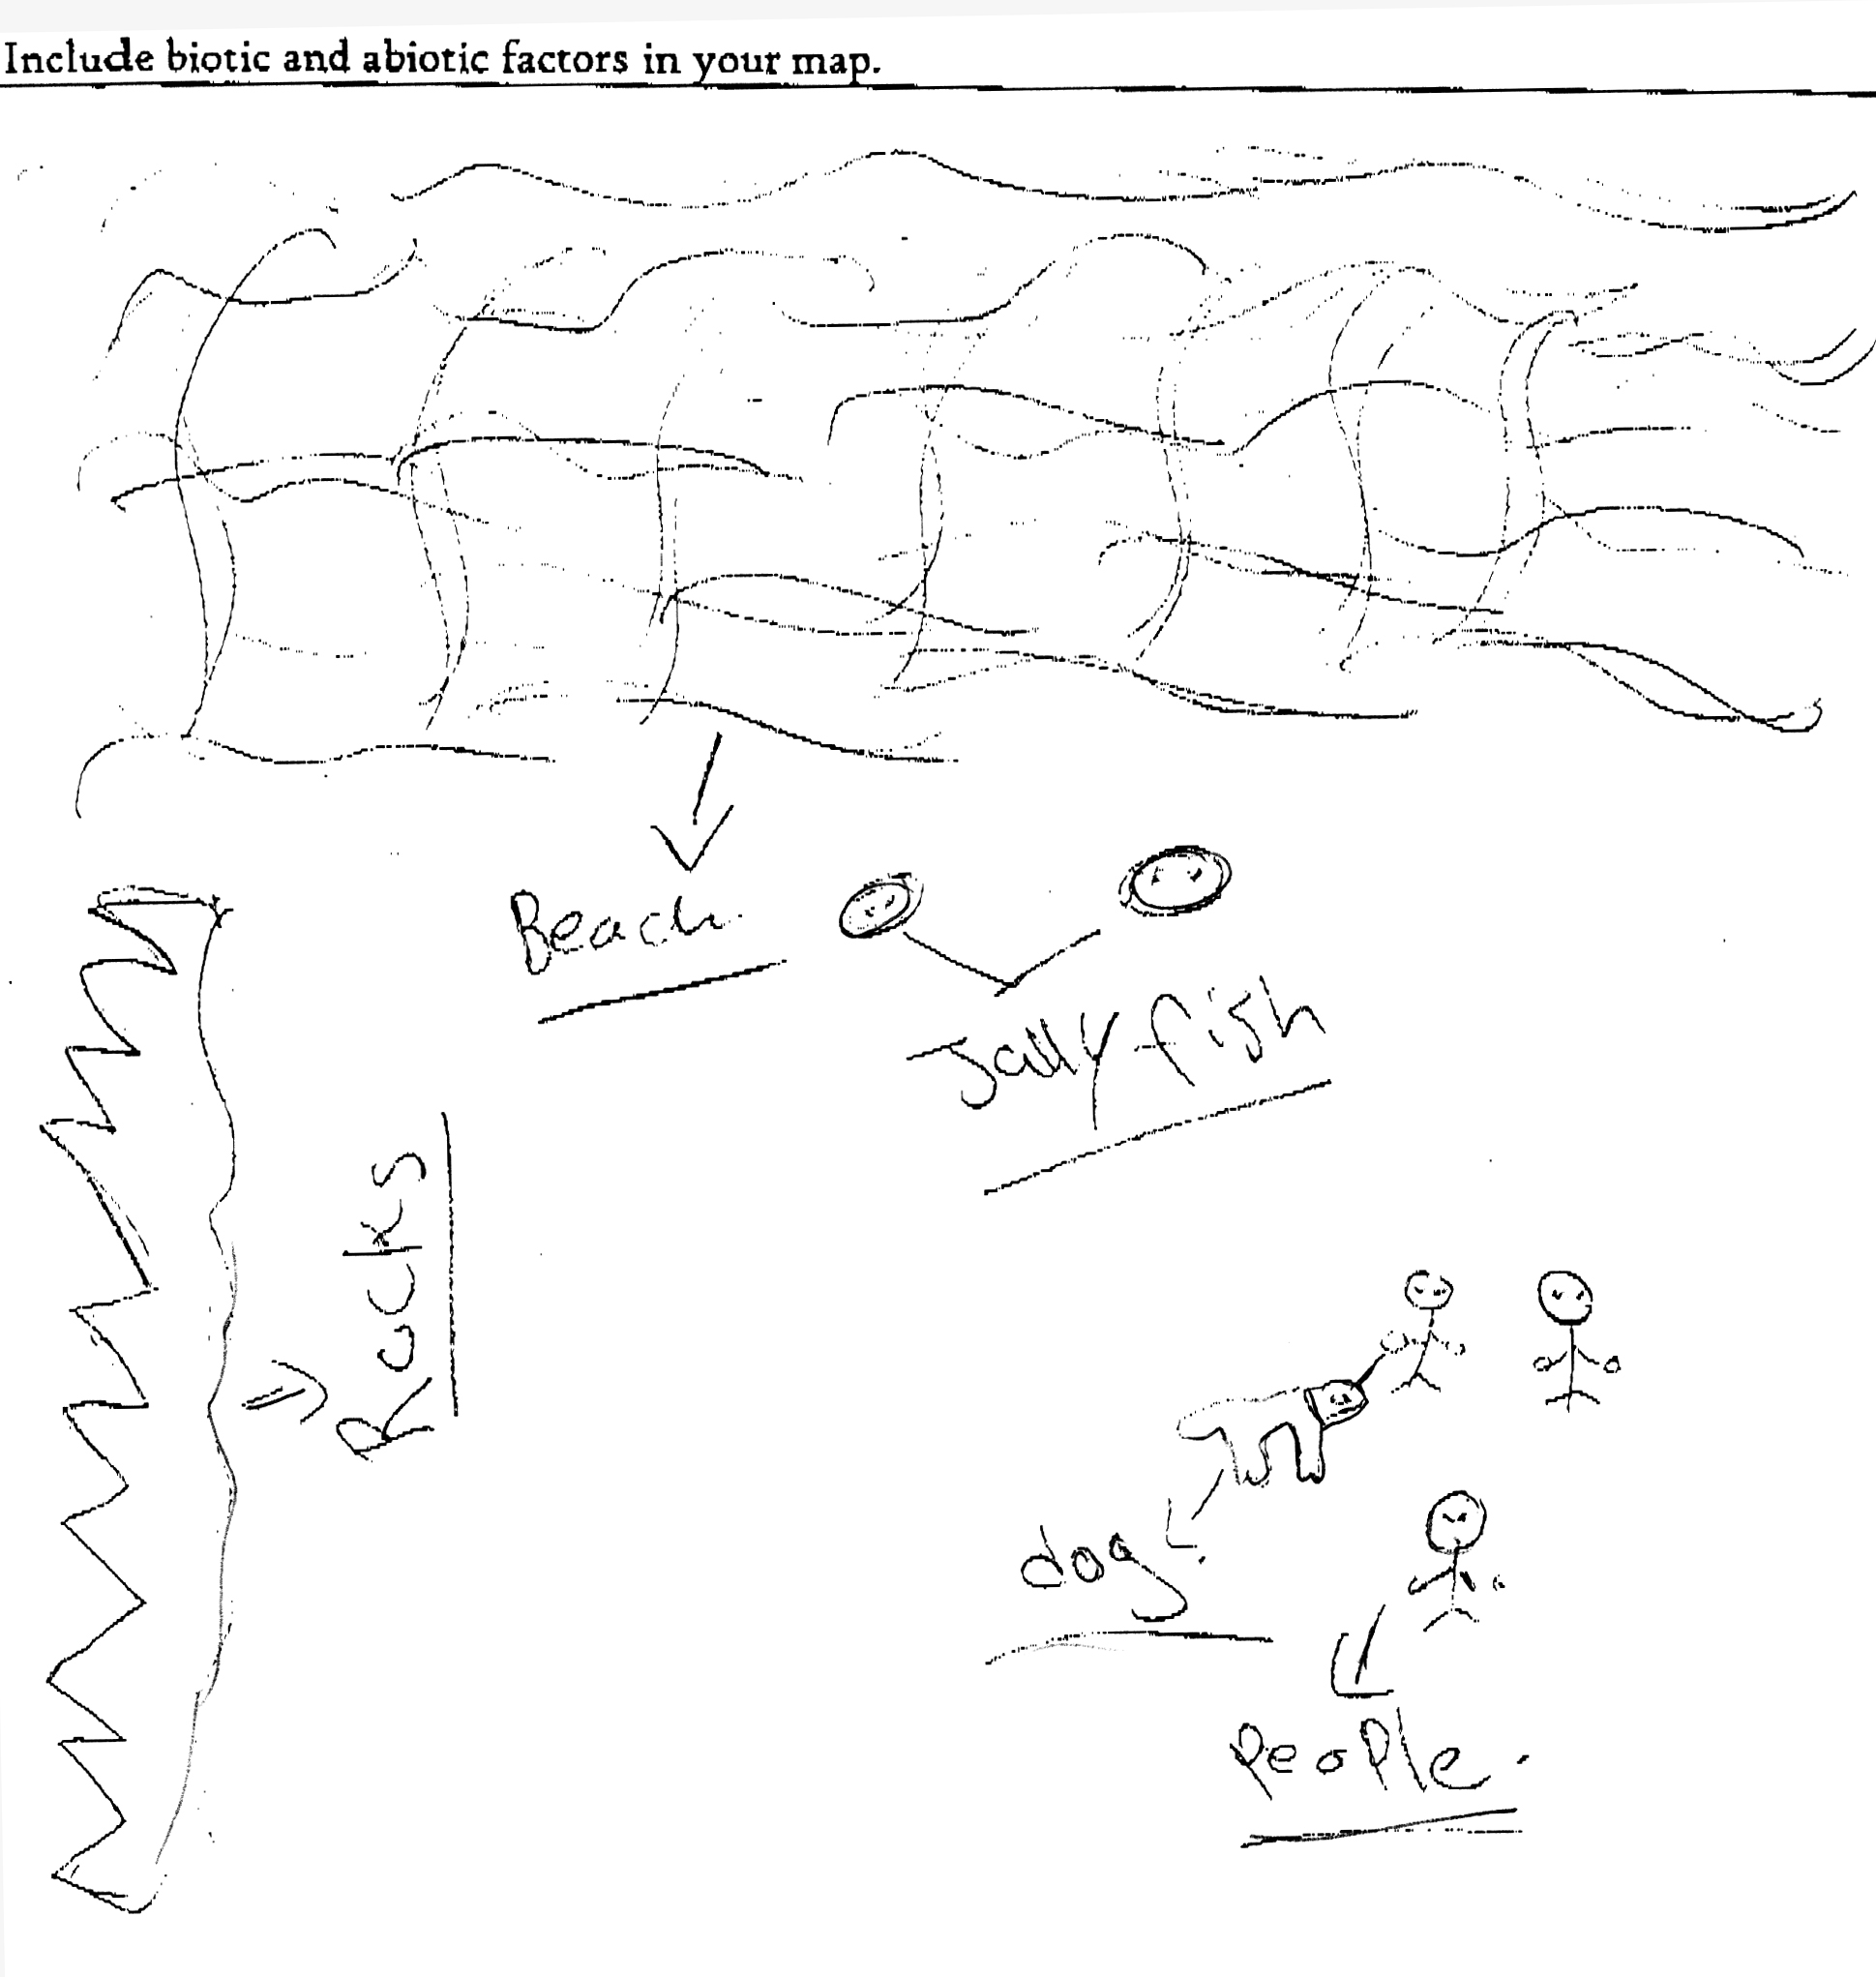 Include biotic and abiotic factors in your map.
Beach
Jallyfish
Rocks
dog
People.